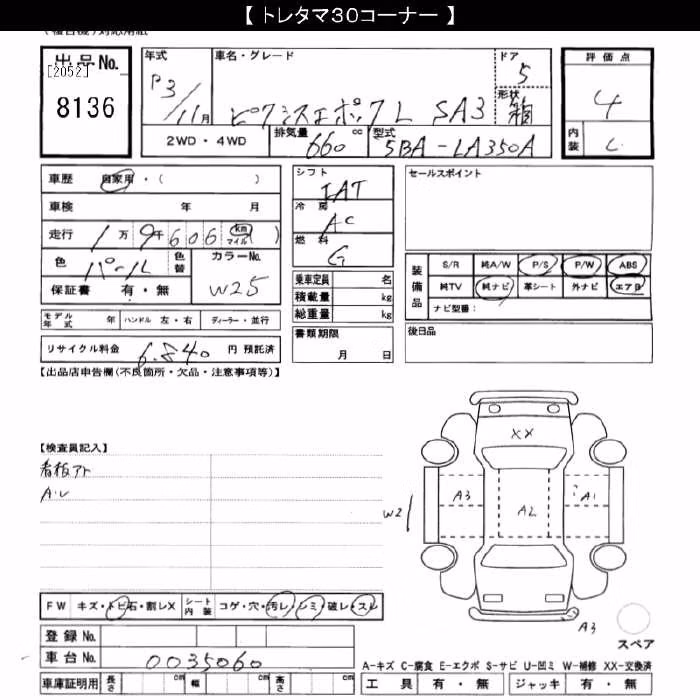 【 トレタマ30コーナー 】
出品No.
[2052]
8136
年式
P3/11月
車名・グレード
ピクシスエポックL SA3
ドア
5
形状
箱
評価点
4
内装
C
2WD・4WD
排気量
660 cc
型式
5BA-LA350A
車歴 自家用・( )
車検 年 月
走行 1万9千606 km マイル( )
色 パール
色替
カラーNo.
W25
保証書 有・無
モデル年式 年 ハンドル 左・右 ディーラー・並行
リサイクル料金 6.840 円 預託済
シフト
IAT
冷房
AC
燃料
G
乗車定員 名
積載量 kg
総重量 kg
書類期限
月 日
セールスポイント
装備品
S/R 純A/W P/S P/W ABS
純TV 純ナビ 革シート 外ナビ エアB
ナビ型番:
後日品
【出品店申告欄(不良箇所・欠品・注意事項等)】
【検査員記入】
看板アト
A・U
XX
A3
A2
A1
W2
A3
スペア
FW キズ・トビ石・割レX
シート内装 コゲ・穴・汚レ・シミ・破レ・スレ
登録No.
車台No. 0035060
車庫証明用 長さ cm 幅 cm 高さ cm
A-キズ C-腐食 E-エクボ S-サビ U-凹ミ W-補修 XX-交換済
工具 有・無 ジャッキ 有・無